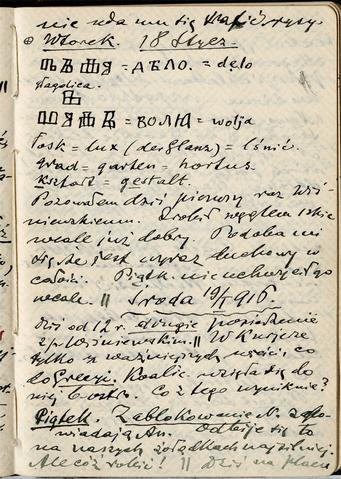 nie uda mu się trafić rysy.
⊕ Wtorek. 18 Stycz.
= ДѢЛО. = dęlo
głagolica.
= ВОЛЮ = wolja
łosk = lux (der Glanz) = lśnić.
grad = garten = hortus.
Kształt = gestalt.
Pozowałem dziś pierwszy raz Wiś-
niewskiemu. Zrobił węglem szkic
wcale już dobry. Podoba mi
się, że jest wyraz duchowy w
całości. Piątk. nie uchwycił go
wcale. || Środa 19/I 916.
Dziś od 12 r. drugie posiedzenie
z p. Wiśniewskim. || W Kurjerze
tylko z ważniejszych wieści, co
do Grecyi. Koalic. wzięła się do
niej ostro. Co z tego wyniknie?
Piątek. Zablokowanie N. zapo-
wiadają An. Odbije się to
na naszych żołądkach najsilniej.
Ale cóż robić! || Dziś na placu